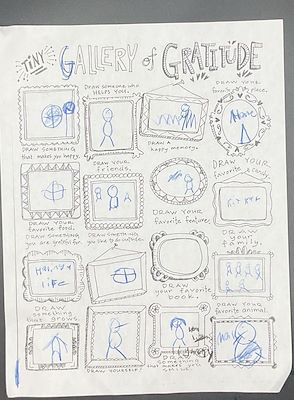 TINY GALLERY of GRATITUDE
DRAW SOMETHING
that makes you happy.
DRAW SOMEONE who
HELPS YOU.
DRAW A
happy memory.
DRAW YOUR
favorite place.
Home
DRAW YOUR
favorite food.
DRAW YOUR
friends.
DRAW YOUR
favorite feature.
DRAW YOUR
favorite candy.
Kit Kat
DRAW SOMETHING
you are grateful for.
life
DRAW SOMETHING
you like to do outside.
DRAW
your favorite
book.
DRAW
your
family.
DRAW
something
that grows.
DRAW YOURSELF!
DRAW
something
that makes you
DRAW YOUR
favorite animal.